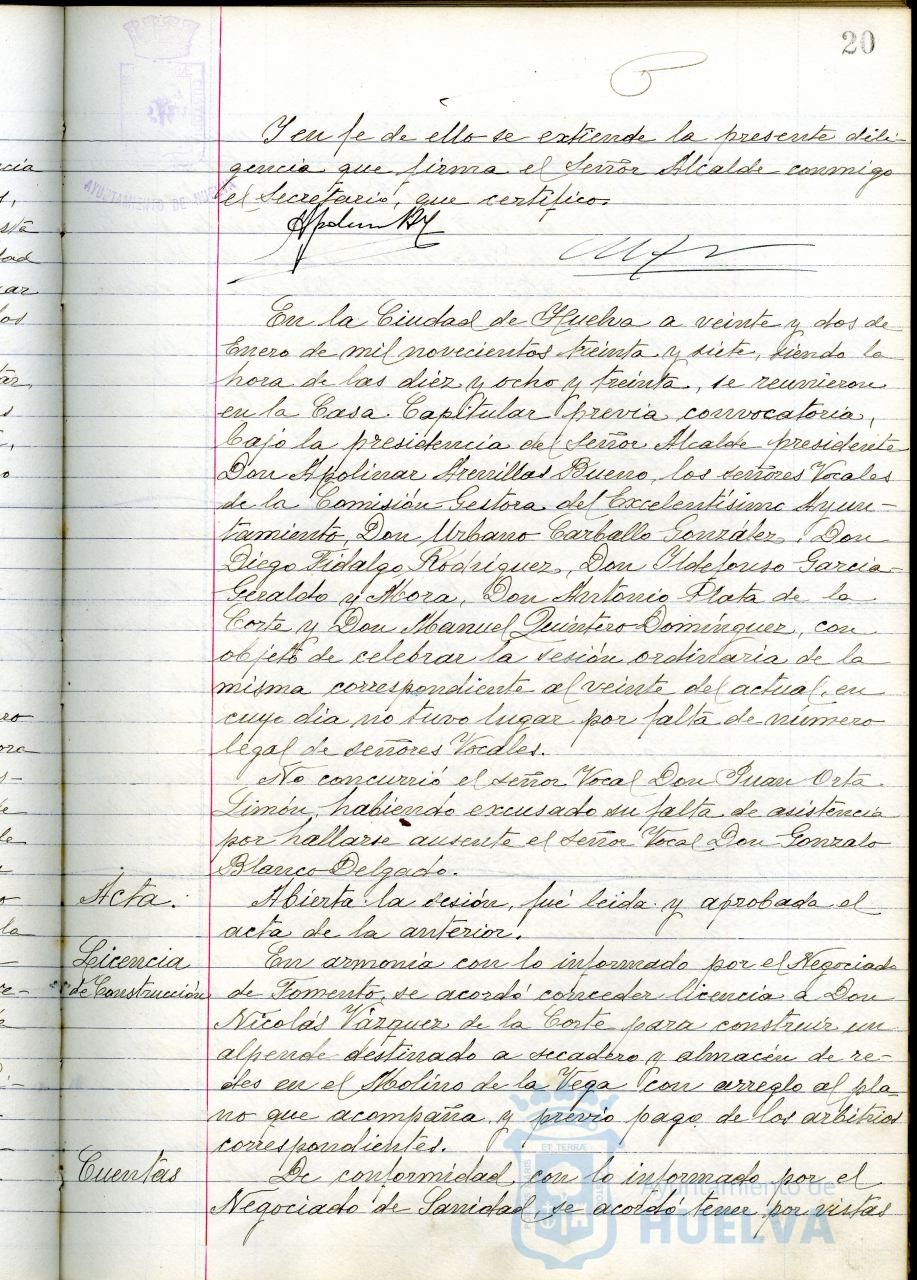 20
Y en fe de ello se extiende la presente dili-
gencia que firma el Señor Alcalde conmigo
el Secretario, que certifico.
AYUNTAMIENTO DE HUELVA
En la Ciudad de Huelva a veinte y dos de
Enero de mil novecientos treinta y siete, siendo la
hora de las diéz y ocho y treinta, se reunieron
en la Casa Capitular previa convocatoria,
bajo la presidencia del Señor Alcalde presidente
Don Apolinar Arenillas Bueno, los señores Vocales
de la Comisión Gestora del Excelentísimo Ayun-
tamiento, Don Urbano Carballo González, Don
Diego Fidalgo Rodríguez, Don Ildefonso Garcia-
Geraldo y Mora, Don Antonio Plata de la
Corte y Don Manuel Quintero Domínguez, con
objeto de celebrar la sesión ordinaria de la
misma correspondiente al veinte del actual, en
cuyo dia no tuvo lugar por falta de número
légal de señores Vocales.
No concurrió el señor Vocal Don Juan Orta
Limón, habiendo excusado su falta de asistencia
por hallarse ausente el señor Vocal Don Gonzalo
Blanco Delgado.
Acta.
Abierta la sesión, fué leida y aprobada el
acta de la anterior.
Licencia
de Construcción
En armonía con lo informado por el Negociado
de Fomento, se acordó conceder licencia a Don
Nicolás Vázquez de la Corte para construir un
alpende destinado a secadero y almacén de re-
des en el Molino de la Vega con arreglo al pla-
no que acompaña y previo pago de los arbitrios
correspondientes.
Cuentas
De conformidad con lo informado por el
Negociado de Sanidad, se acordó tener por vistas
Ayuntamiento de
HUELVA